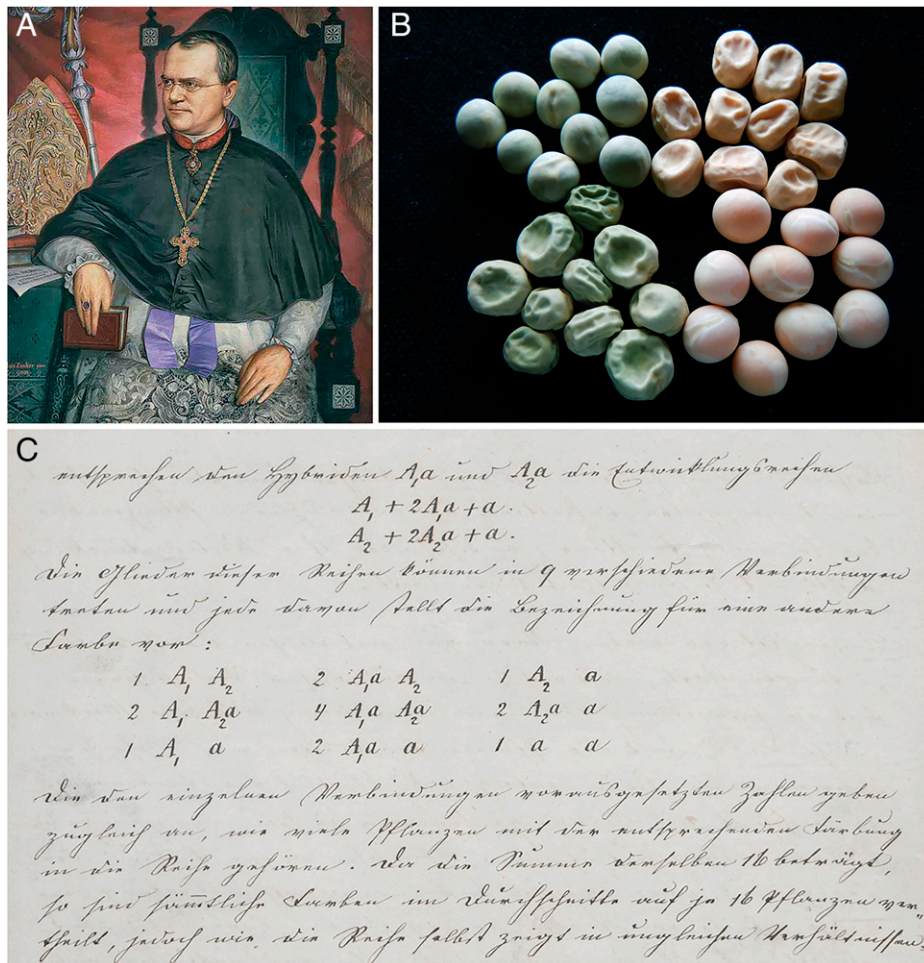 A
B
C
entsprechen den Hybriden A₁a und A₂a die Entwicklungsreihen
A₁ + 2A₁a + a.
A₂ + 2A₂a + a.
Die Glieder dieser Reihen können in 9 verschiedene Verbindungen
treten und jede davon stellt die Bezeichnung für eine andere
Farbe vor:
1 A₁ A₂ 2 A₁a A₂ 1 A₂ a
2 A₁ A₂a 4 A₁a A₂a 2 A₂a a
1 A₁ a 2 A₁a a 1 a a
Die den einzelnen Verbindungen vorausgesetzten Zahlen geben
zugleich an, wie viele Pflanzen mit der entsprechenden Färbung
in die Reihe gehören. Da die Summe derselben 16 beträgt,
so sind sämmtliche Farben im Durchschnitte auf je 16 Pflanzen ver-
theilt, jedoch wie die Reihe selbst zeigt in ungleichen Verhältnissen.